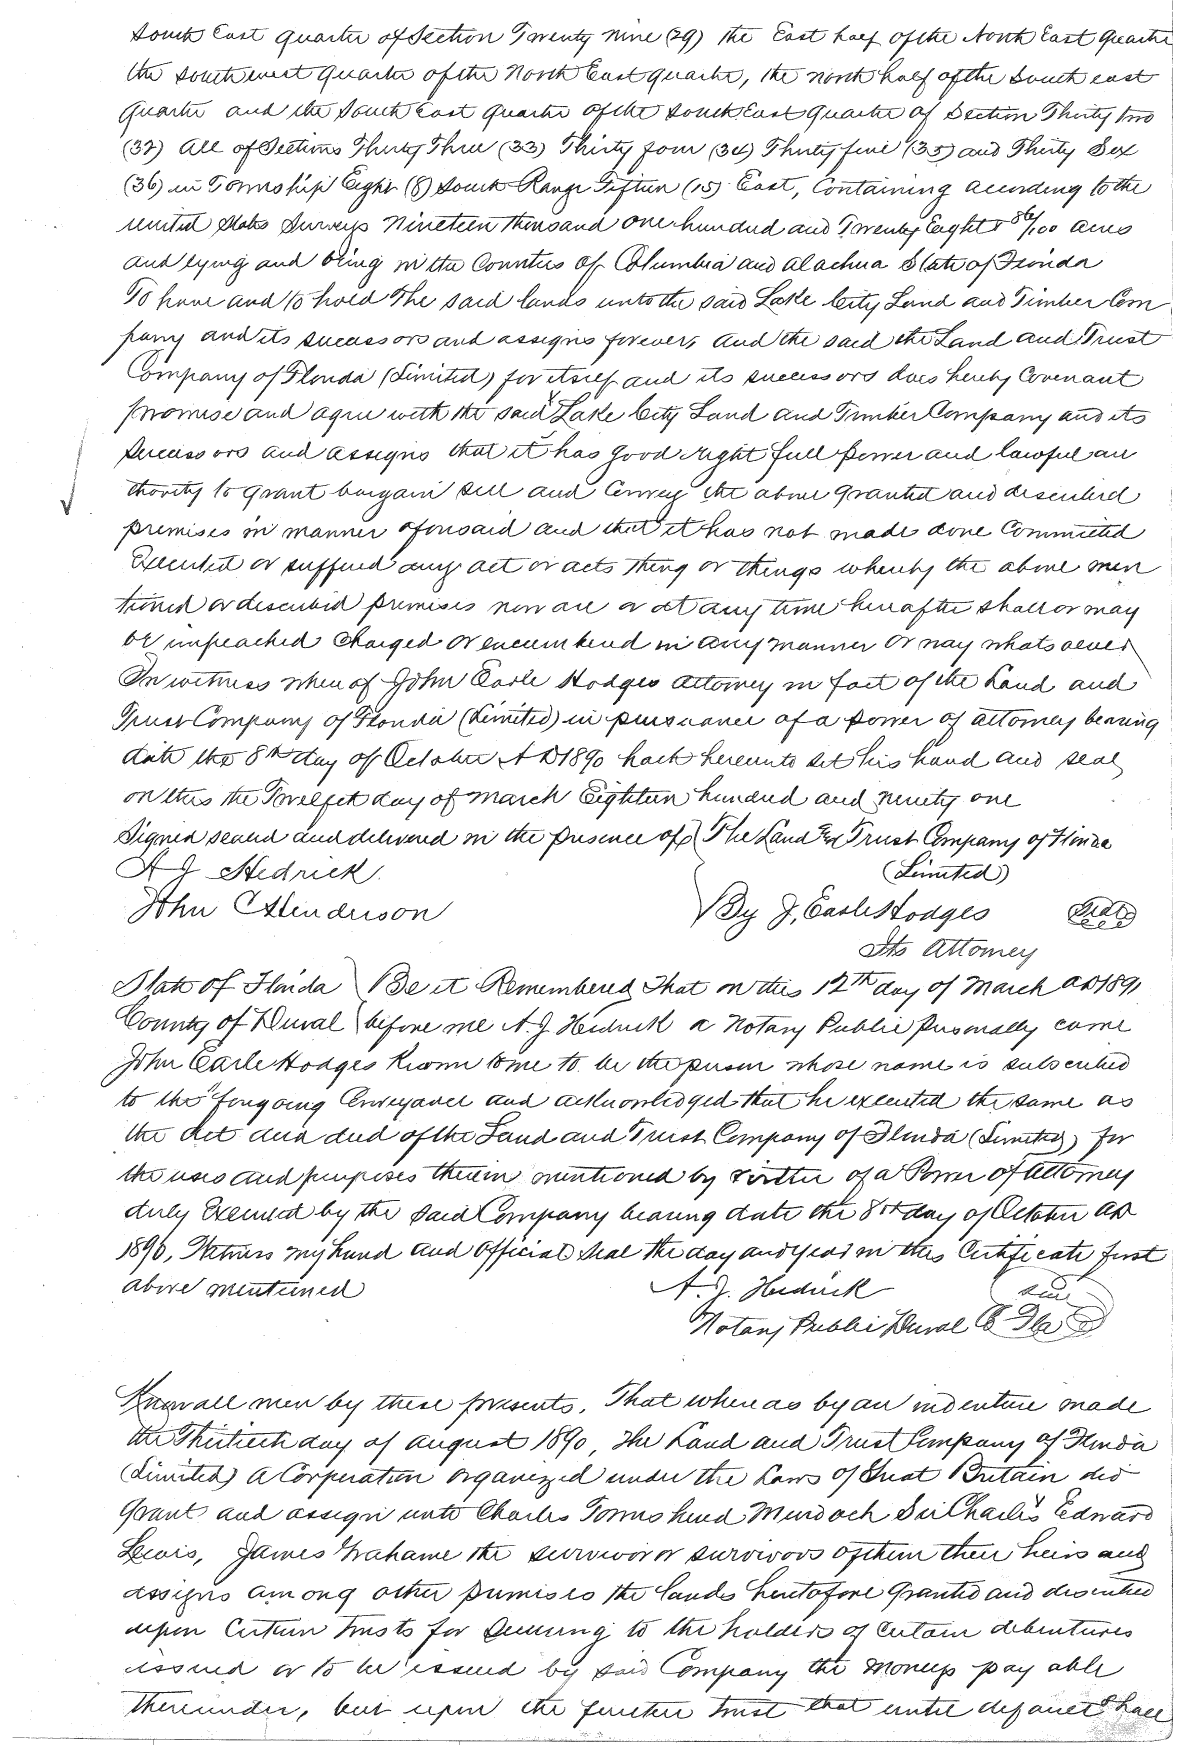 South East quarter of Section Twenty nine (29) the East half of the North East Quarter
the south west quarter of the North East quarter, the north half of the South east
quarter and the South East quarter of the South East quarter of Section Thirty two
(32) All of Sections Thirty Three (33) Thirty four (34) Thirty five (35) and Thirty Six
(36) in Township Eight (8) South Range Fifteen (15) East, Containing according to the
united States Surveys Nineteen thousand one hundred and Twenty Eight & 86/100 acres
and lying and being in the Counties of Columbia and Alachua State of Florida
To have and to hold the said lands unto the said Lake City Land and Timber Com
pany and its successors and assigns forever, and the said the Land and Trust
Company of Florida (Limited) for itself and its successors does hereby Covenant
promise and agree with the said Lake City Land and Timber Company and its
successors and assigns that it has good right full power and lawful au
thority to grant bargain sell and Convey the above granted and described
premises in manner aforesaid and that it has not made done Committed
Executed or suffered any act or acts thing or things whereby the above men
tioned or described premises now are or at any time hereafter shall or may
be impeached Charged or encumbered in any manner or way whatsoever
In witness whereof John Earle Hodges Attorney in fact of the Land and
Trust Company of Florida (Limited) in pursuance of a power of attorney bearing
date the 8th day of October A D 1890 hath hereunto set his hand and seal
on this the Twelfth day of March Eighteen hundred and ninety one
Signed sealed and delivered in the presence of The Land & Trust Company of Florida
A J Hedrick (Limited)
John C Henderson By J. Earle Hodges Seal
Its Attorney
State of Florida Be it Remembered That on this 12th day of March AD 1891
County of Duval before me A. J. Hedrick a Notary Public personally came
John Earle Hodges known to me to be the person whose name is subscribed
to the foregoing Conveyance and acknowledged that he executed the same as
the act and deed of the Land and Trust Company of Florida (Limited) for
the uses and purposes therein mentioned by virtue of a Power of Attorney
duly Executed by the said Company bearing date the 8th day of October AD
1890, Witness my hand and Official Seal the day and year in this Certificate first
above mentioned A. J. Hedrick Seal
Notary Public Duval Co Fla
Know all men by these presents, That whereas by an indenture made
the Thirtieth day of August 1890, The Land and Trust Company of Florida
(Limited) a Corporation organized under the Laws of Great Britain did
Grant and assign unto Charles Townshend Murdoch Sir Charles Edward
Lewis, James Grahame the survivor or survivors of them their heirs and
assigns among other premises the lands heretofore granted and described
upon Certain trusts for securing to the holders of Certain debentures
issued or to be issued by said Company the moneys pay able
thereunder, but upon the further trust that until default shall